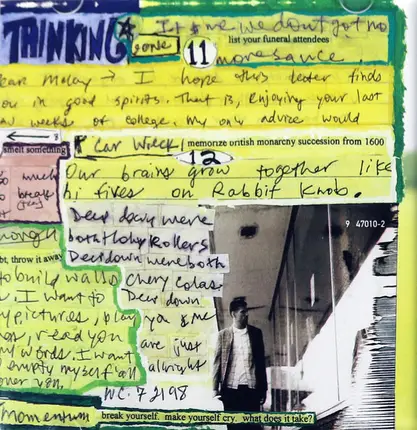 THINKING
It & me we don't got no
gone
11
list your funeral attendees
more sauce.
ear Molay → I hope this leter finds
ou in good spirits. That is, enjoying your last
weeks of college. My only advice would
smell something
Car Wreck!
memorize british monarchy succession from 1600
12
o much
Our brains grow together like
break
hi fives on Rabbit Knob.
nough
Deep down were
both Holy Rollers
bt, throw it away
Deep down were both
to build walls
chery colas
I want to
Deep down
pictures, play
you & me
read you
are just
my words. I want
alright
empty myself all
over you,
W.C. 7 21 98
9 47010-2
momentum
break yourself. make yourself cry. what does it take?